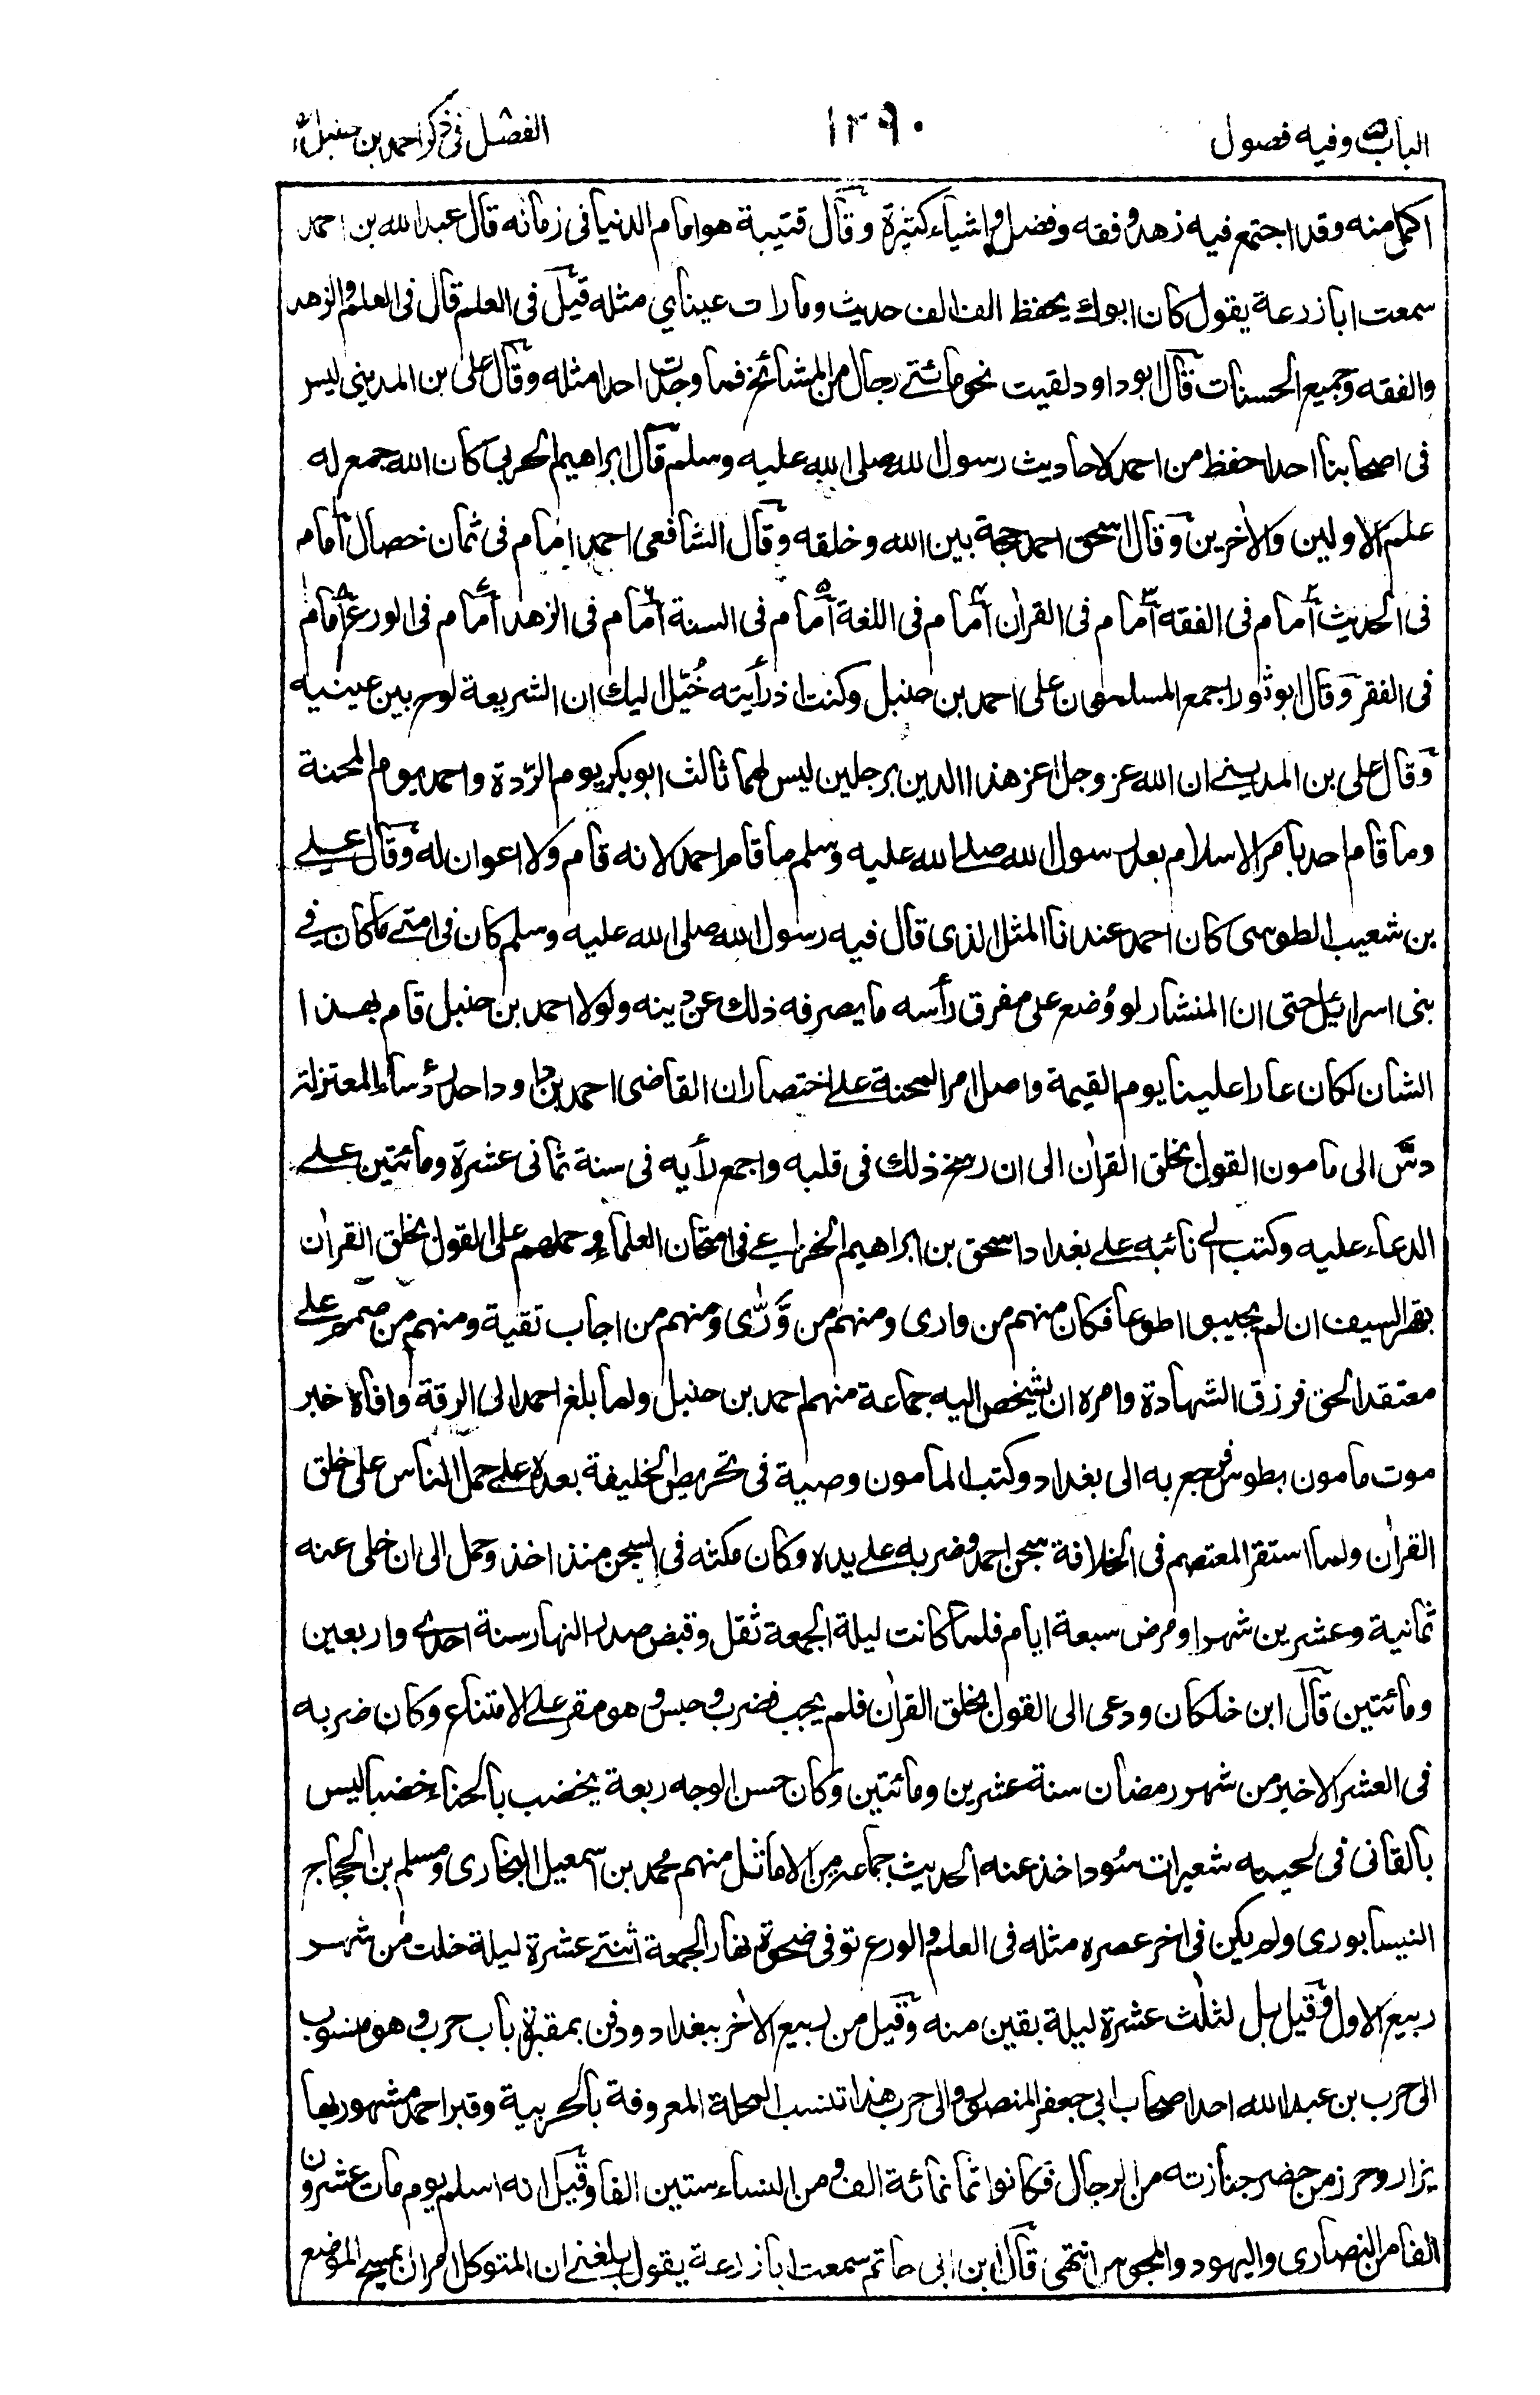 الباب وفيه فصول
١٣٩٠
الفصل فى ذكر احمد بن حنبل
اكمل منه وقد اجتمع فيه زهد وفقه وفضل واشياء كثيرة وقال قتيبة هو امام الدنيا فى زمانه قال عبد الله بن احمد
سمعت ابا زرعة يقول كان ابوك يحفظ الف الف حديث وما رات عيناي مثله قيل فى العلم قال فى العلم والزهد
والفقه وجميع الحسنات قال ابوداود لقيت نحو مائتے رجال من المشائخ فما وجدت احدا مثله وقال على بن المديني ليس
فى اصحابنا احدا حفظ من احمد لاحاديث رسول الله صلى الله عليه وسلم قال ابراهيم الحربى كان الله جمع له
علم الاولين والاٰخرين وقال اسحق احمد حجة بين الله وخلقه وقال الشافعى احمد امام فى ثمان خصال امام
فى الحديث امام فى الفقه امام فى القراٰن امام فى اللغة امام فى السنة امام فى الزهد امام فى الورع امام
فى الفقر وقال ابوثور اجمع المسلمون على احمد بن حنبل وكنت اذ رأيته خُيّل اليك ان الشريعة لوح بين عينيه
وقال على بن المديني ان الله عز وجل اعز هذا الدين برجلين ليس لهما ثالث ابوبكر يوم الرّدة واحمد يوم المحنة
وما قام احد بامر الاسلام بعد رسول الله صلے الله عليه وسلم ما قام احمد لانه قام ولا اعوان له وقال علے
بن شعيب الطوسى كان احمد عندنا المثل الذى قال فيه رسول الله صلى الله عليه وسلم كان فى امتے ما كان فے
بنى اسرائيل حتى ان المنشار لو وُضع على مفرق رأسه ما يصرفه ذلك عن دينه ولولا احمد بن حنبل قام بهذا
الشان لكان عارا علينا يوم القيمة واصل امر المحنة علے اختصار ان القاضى احمد بن داود احد رؤساء المعتزلة
دسّ الى مامون القول بخلق القراٰن الى ان رسخ ذلك فى قلبه واجمع رأيه فى سنة ثمانى عشرة ومائتين علے
الدعاء عليه وكتب الے نائبه علے بغداد اسحق بن ابراهيم الخزاعے فى امتحان العلماء وحملهم على القول بخلق القراٰن
بقهر السيف ان لم يجيبوا طوعا فكان منهم من وارى ومنهم من وَرّٰى ومنهم من اجاب تقية ومنهم من صمم علے
معتقد الحق فرزق الشهادة وامره ان يشخص اليه جماعة منهم احمد بن حنبل ولما بلغ احمد الى الرقة وافاه خبر
موت مامون بطوس فرجع به الى بغداد وكتب المامون وصية فى تحريض الخليفة بعده علے حمل الناس على خلق
القراٰن ولما استقر المعتصم فى الخلافة سجن احمد وضربه علے يده وكان مكثه فى السجن منذ اخذ وحمل الى ان خلى عنه
ثمانية وعشرين شهرا ومرض سبعة ايام فلما كانت ليلة الجمعة ثقل وقبض صدر النهار سنة احدے واربعين
ومائتين قال ابن خلكان ودعى الى القول بخلق القراٰن فلم يجب فضرب وحبس وهو مقر علے الامتناع وكان ضربه
فى العشر الاخير من شهر رمضان سنة عشرين ومائتين وكان حسن الوجه ربعة يخضب بالحناء خضبا ليس
بالقانى فى لحيته شعيرات سُود اخذ عنه الحديث جماعة من الاماثل منهم محمد بن اسمعيل البخارى ومسلم بن الحجاج
النيسابورى ولم يكن فى اٰخر عصره مثله فى العلم والورع توفى ضحوة نهار الجمعة اثنتے عشرة ليلة خلت من شهر
ربيع الاول وقيل بل لثلٰث عشرة ليلة بقين منه وقيل من ربيع الاٰخر ببغداد ودفن بمقبرة باب حرب وهو منسوب
الى حرب بن عبد الله احد اصحاب ابى جعفر المنصور والى حرب هذا تنسب المحلة المعروفة بالحربية وقبر احمد مشهور بها
يزار وحرز من حضر جنازته من الرجال فكانوا ثمانمائة الف ومن النساء ستين الفا وقيل انه اسلم يوم مات عشرون
الفا من النصارى واليهود والمجوس انتهى قال ابن ابى حاتم سمعت ابا زرعة يقول بلغنے ان المتوكل امر ان يمسح الموضع